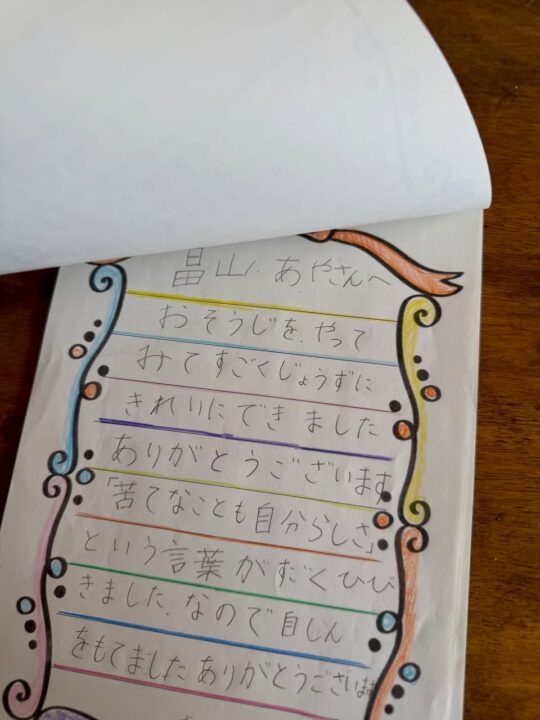 畠山あやさんへ
おそうじを、やって
みてすごくじょうずに
きれいにできました
ありがとうございます
「苦てなことも自分らしさ」
という言葉がすごくひび
きました。なので自しん
をもてましたありがとうございます